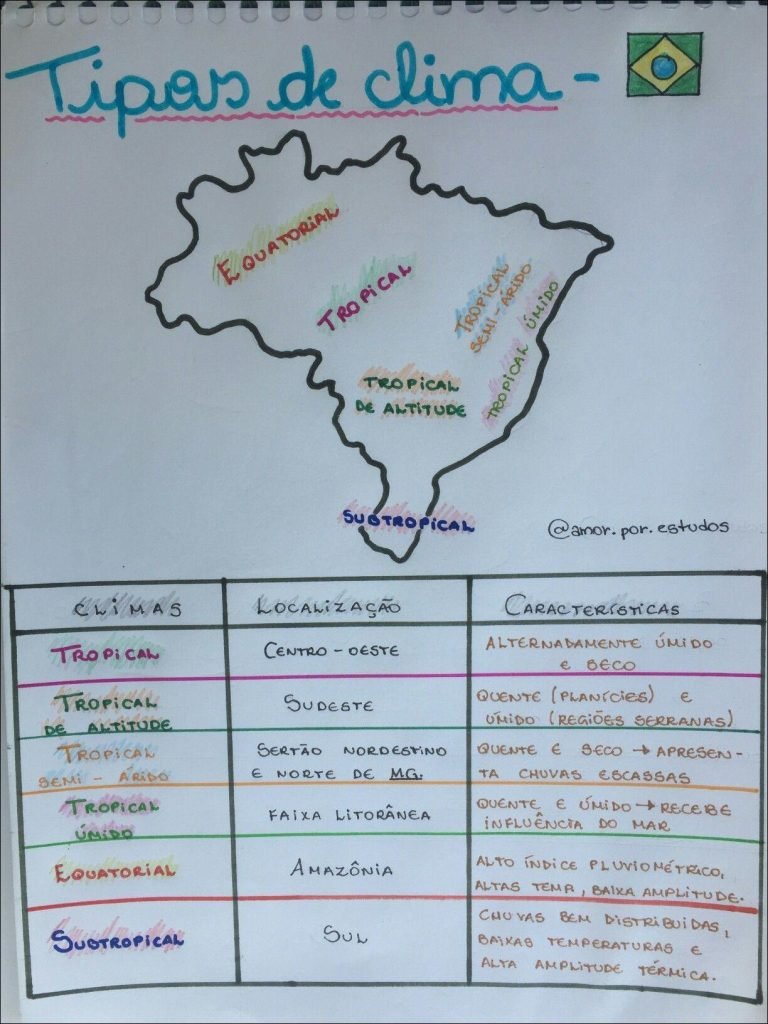 Tipos de clima -
EQUATORIAL
TROPICAL
TROPICAL
SEMI-ÁRIDO
TROPICAL ÚMIDO
TROPICAL
DE ALTITUDE
SUBTROPICAL
@amor.por.estudos
CLIMAS LOCALIZAÇÃO CARACTERÍSTICAS
TROPICAL CENTRO-OESTE ALTERNADAMENTE ÚMIDO
E SECO
TROPICAL
DE ALTITUDE SUDESTE QUENTE (PLANÍCIES) E
ÚMIDO (REGIÕES SERRANAS)
TROPICAL
SEMI-ÁRIDO SERTÃO NORDESTINO
E NORTE DE MG. QUENTE E SECO → APRESEN-
TA CHUVAS ESCASSAS
TROPICAL
ÚMIDO FAIXA LITORÂNEA QUENTE E ÚMIDO → RECEBE
INFLUÊNCIA DO MAR
EQUATORIAL AMAZÔNIA ALTO ÍNDICE PLUVIOMÉTRICO,
ALTAS TEMP, BAIXA AMPLITUDE.
SUBTROPICAL SUL CHUVAS BEM DISTRIBUIDAS,
BAIXAS TEMPERATURAS E
ALTA AMPLITUDE TÉRMICA.